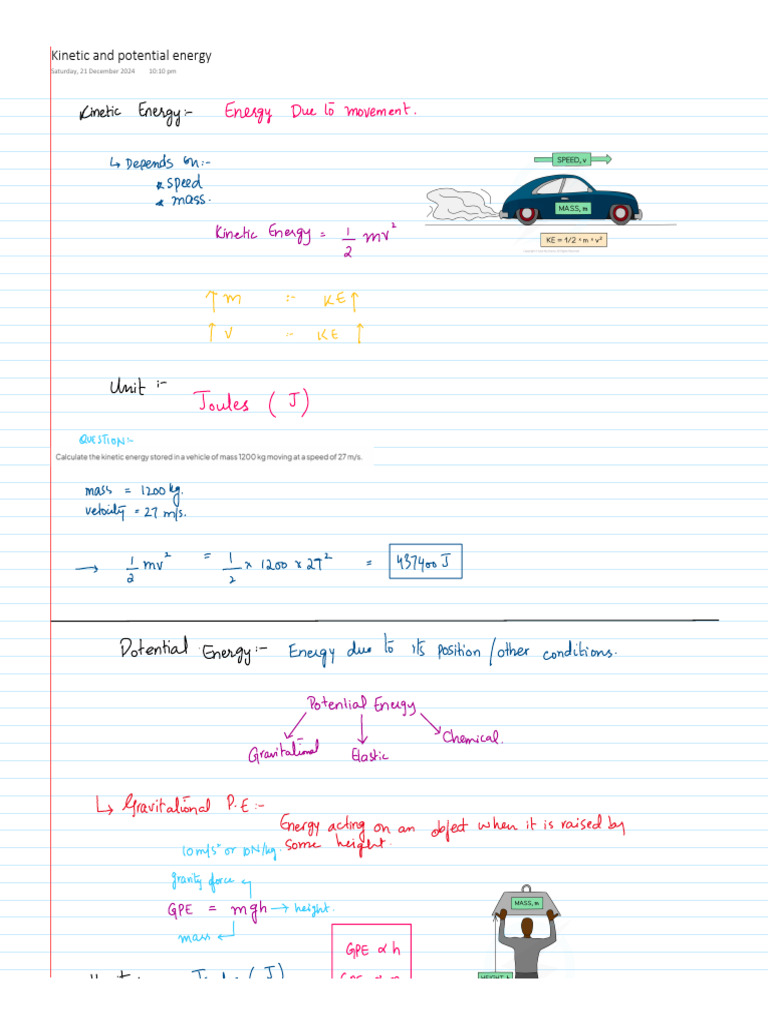 Kinetic and potential energy
Saturday, 21 December 2024 10:10 pm
Kinetic Energy:- Energy Due to movement.
↳ Depends on:-
* speed
* mass.
SPEED, v
MASS, m
KE = 1/2 * m * v²
Kinetic Energy = 1/2 mv²
↑ m :- KE ↑
↑ v :- KE ↑
Unit :- Joules (J)
QUESTION:-
Calculate the kinetic energy stored in a vehicle of mass 1200 kg moving at a speed of 27 m/s.
mass = 1200 kg.
velocity = 27 m/s.
→ 1/2 mv² = 1/2 × 1200 × 27² = 437400 J
Potential Energy:- Energy due to its position/other conditions.
Potential Energy
Gravitational Elastic Chemical.
↳ Gravitational P.E:-
Energy acting on an object when it is raised by
some height.
10m/s² or 10N/kg.
gravity force
GPE = mgh → height.
mass
MASS, m
GPE ∝ h
Joules (J)